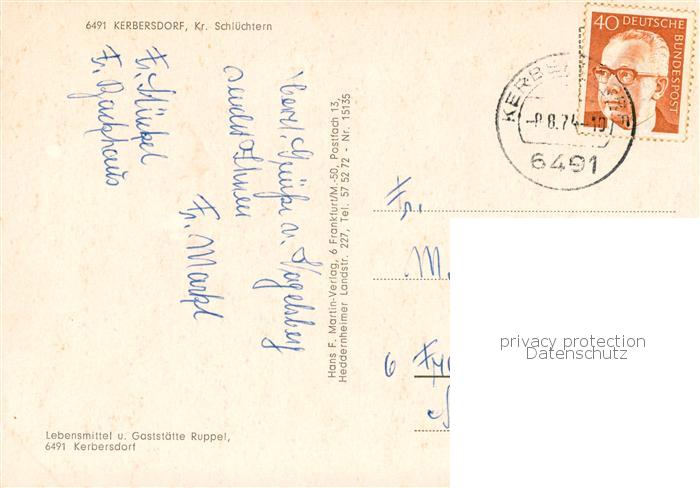 6491 KERBERSDORF, Kr. Schlüchtern
Herzl. Grüße v. Vogelsberg
sendet Ihnen
Fr. Markl
Fr. Hünkel
Fr. Backhaus
Hans F. Martin-Verlag, 6 Frankfurt/M.-50, Postfach 13,
Heddernheimer Landstr. 227, Tel. 57 52 72 - Nr. 15135
40 DEUTSCHE
BUNDESPOST
-8.8.74-10
6491
Fr.
M.
6
privacy protection
Datenschutz
Lebensmittel u. Gaststätte Ruppel,
6491 Kerbersdorf